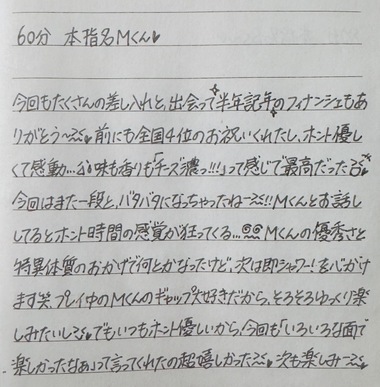 60分 本指名Mくん♥
今回もたくさんの差し入れと、出会って半年記念のフィナンシェもあ
りがとう〜!! 前にも全国4位のお祝いくれたし、ホント優し
くて感動… 味も香りも「チーズ濃っ!!!」って感じで最高だった
今回はまた一段と、バタバタになっちゃったねー!! Mくんとお話し
してるとホント時間の感覚が狂ってく る… Mくんの優秀さと
特異体質のおかげで何とかなったけど、次は即シャワー!を心がけ
ます笑 プレイ中のMくんのギャップ大好きだから、そろそろゆっくり楽
しみたいし でもいつもホント優しいから、今回も「いろいろな面で
楽しかったなぁ」って言ってくれたの超嬉しかった 次も楽しみー